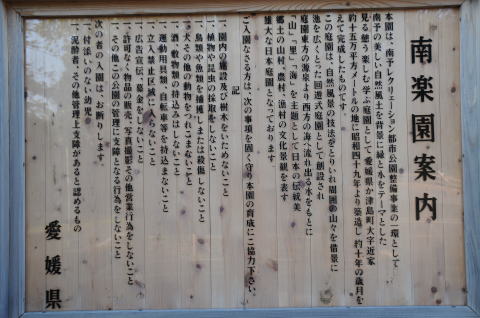 南楽園案内
本園は、南予レクリエーション都市公園整備事業の一環として
南予の美しい自然風土を背景に緑と水をテーマとした
見る憩う楽しむ学ぶ庭園として愛媛県が津島町大字近家
約十五万平方メートルの地に昭和四十九年より築造し約十年の歳月を
えて完成したものです。
この庭園は、自然風景の技法をとりいれ周囲の山々を借景に
池を広くとった回遊式庭園として創設され
庭園東方の源泉より西方の海へ流れ出る水をもとに
「山」「里」「海」を主題として日本の伝統美
郷土の山村、農村、漁村の文化景観を表す
雄大な日本庭園となっております
ご入園なさる方は、次の事項を固く守り本園の育成にご協力下さい。
記
一、園内の施設及び樹木をいためないこと
一、植物や昆虫の採取をしないこと
一、鳥類や魚類を捕獲しまたは殺傷しないこと
一、犬その他の動物をつれこまないこと
一、酒・飲物類の持込みはしないこと
一、運動用具類、自転車等を持込まないこと
一、立入禁止区域に入らないこと
一、広告宣伝、募金などをしないこと
一、許可なく物品の販売、写真撮影その他営業行為をしないこと
一、その他この公園の管理に支障となる行為をしないこと
次の者の入園は、お断りします。
一、付添いのない幼児
一、泥酔者、その他管理上支障があると認めるもの
愛媛県